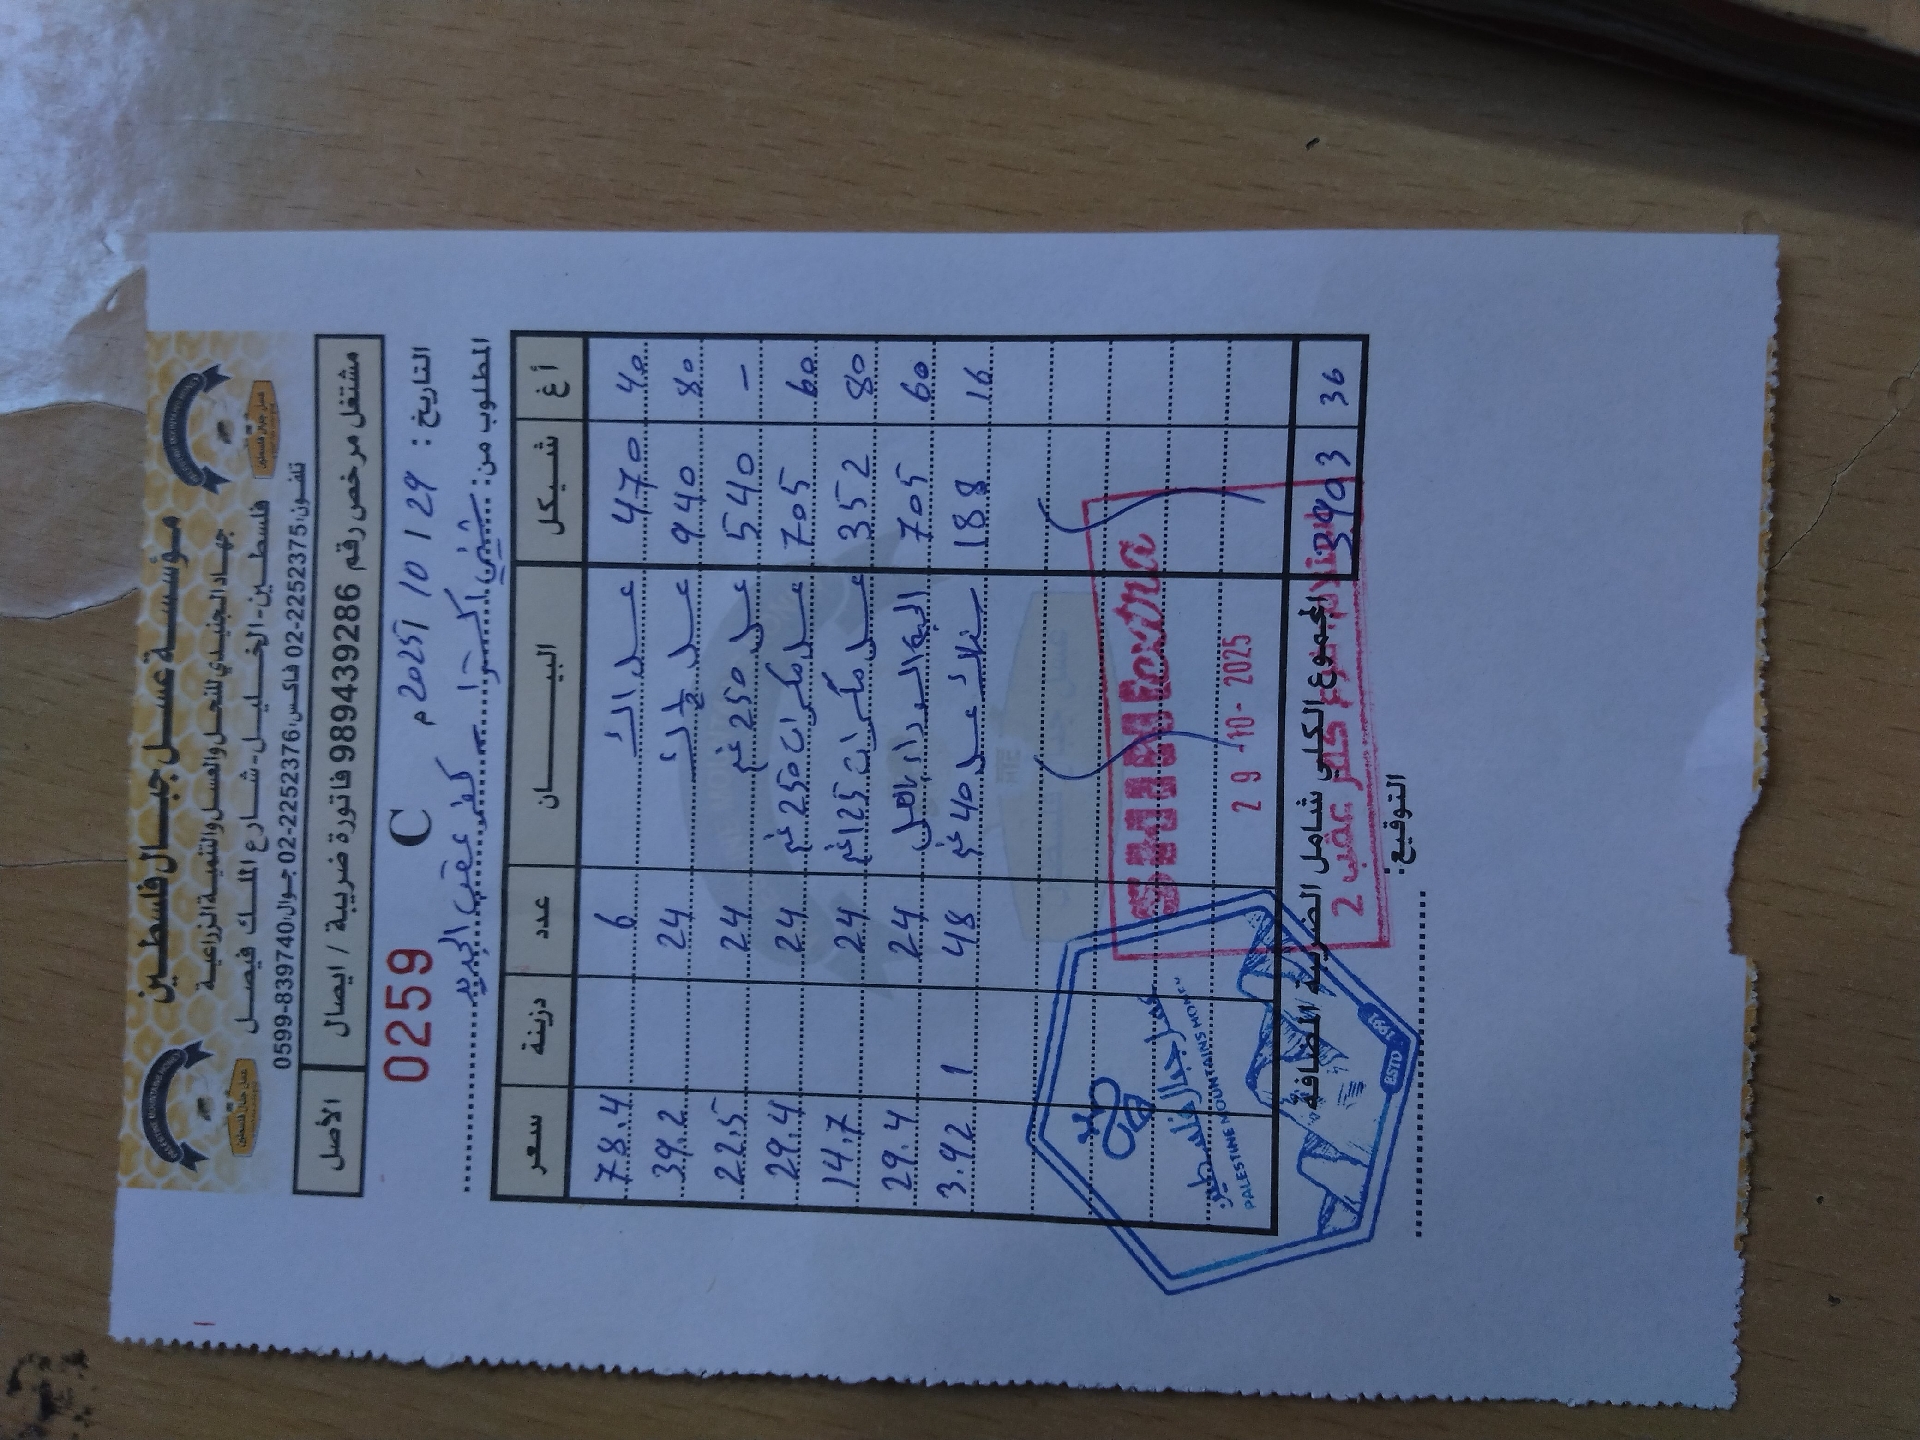 مؤسسة عسل جبال فلسطين
جهاد الجنيدي للنحل والعسل والتنمية الزراعية
فلسطين - الخليل - شارع الملك فيصل
تلفون: 02-2252375 فاكس: 02-2252376 جوال: 0599-839740
مشتغل مرخص رقم 989439286 فاتورة ضريبة / ايصال الأصل
التاريخ : 29 / 10 / 2025 م C 0259
المطلوب من: شيني اكسترا - كفر عقب الجديد
أغ شيكل البيان عدد دزينة سعر
40 470 عسل 6 78.4
80 940 عسل 24 39.2
- 540 عسل 250 غم 24 22.5
60 705 عسل مكسرات 250 غم 24 29.4
80 352 عسل مكسرات 125 غم 24 14.7
60 705 الحبة السوداء بالعسل 24 29.4
16 188 عسل 40 غم 48 1 3.92
Extra
29-10-2025
كفر عقب 2
عسل جبال فلسطين
PALESTINE MOUNTAINS HONEY
ESTD 1991
36 3903 المجموع الكلي شامل الضريبة المضافة
التوقيع: